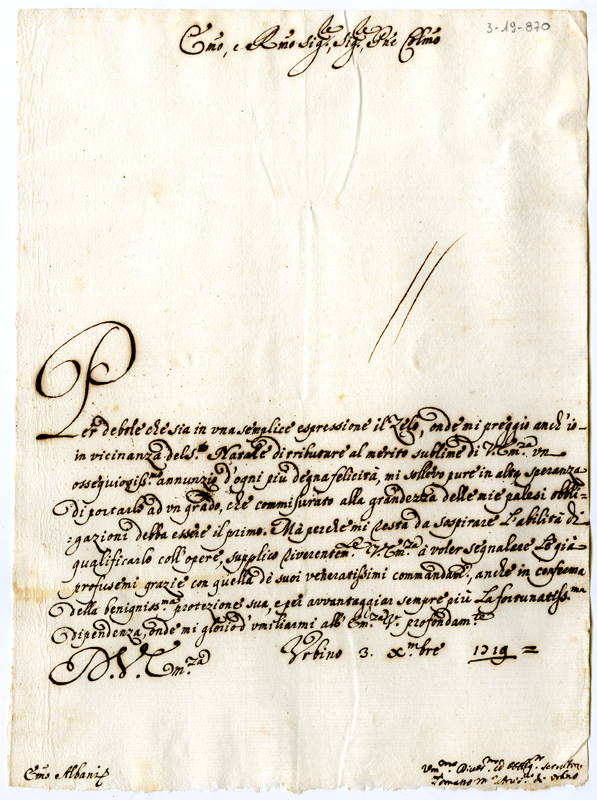 3-19-870
Emo, e Rmo Sig.re, Sig.re Pne Colmo
Per debole che sia in vna semplice espressione il Zelo, onde mi preggio anch'io
in vicinanza del S.to Natale di tributare al merito sublime di V. Em.za vn
ossequiosis.mo annunzio d'ogni più degna felicità, mi sollevo pure in alta speranza
di portarlo ad vn grado, che commisurato alla grandezza delle mie palesi obbli=
=gazioni debba essere il primo. Mà perche mi resta da sospirare l'abilità di
qualificarlo coll'opere, supplico riverentem.te V. Em.za à voler segnalare le già
profusemi grazie con quella de suoi veneratissimi commandam.ti, anche in conferma
della benigniss.ma protezione sua, e per avvantaggiar sempre più la fortunatiss.ma
dipendenza, onde mi glorio d'vmiliarmi all'Em.za V. profondam.te
D. V. Em.za Vrbino 3. Xmbre 1719 =
Emo Albani
Vm.mo Divot.mo ed Obblig.mo Servitore
Tomaso M.a Arciv.o di Vrbino